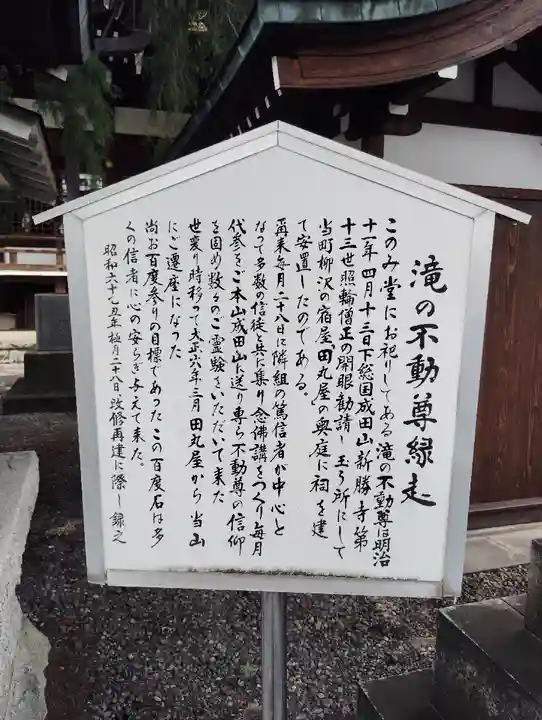 滝の不動尊縁走
このみ堂にお祀りしてある滝の不動尊は明治
十一年四月十三日下総国成田山新勝寺第
十三世照輪僧正の開眼勧請し玉う所にして
当町柳沢の宿屋田丸屋の奥庭に祠を建
て安置したのである。
再来毎月二十八日に隣組の篤信者が中心と
なって多数の信徒と共に集り念佛講をつくり毎月
代参をご本山成田山に送り専ら不動尊の信仰
を固め数々のご霊験をいただいて来た
世変り時移って大正六年三月田丸屋から当山
にご遷座になった
尚お百度参りの目標であったこの百度石は多
くの信者に心の安らぎ与えて来た。
昭和六十乙丑年極月二十八日改修再建に際し録之